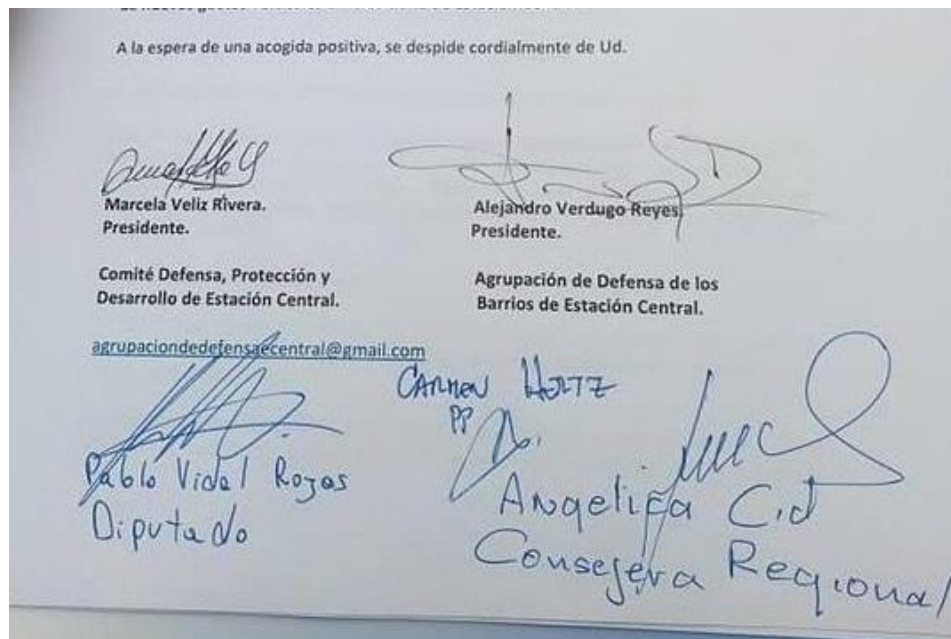 A la espera de una acogida positiva, se despide cordialmente de Ud.
Marcela Veliz Rivera.
Presidente.
Comité Defensa, Protección y
Desarrollo de Estación Central.
Alejandro Verdugo Reyes
Presidente.
Agrupación de Defensa de los
Barrios de Estación Central.
agrupaciondedefensaecentral@gmail.com
Pablo Vidal Rojas
Diputado
CARMEN HERTZ
PP
Angelica Cid
Consejera Regional